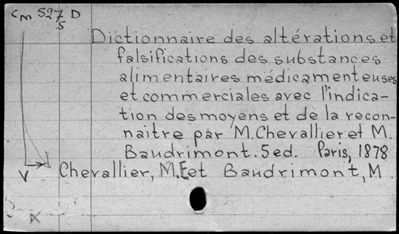 Cm 527 D
5
Dictionnaire des altérations et
falsifications des substances
alimentaires médicamenteuses
et commerciales avec l'indica-
tion des moyens et de la recon-
naitre par M. Chevallier et M.
Baudrimont. 5 ed. Paris, 1878
V Chevallier, M. E et Baudrimont, M
X